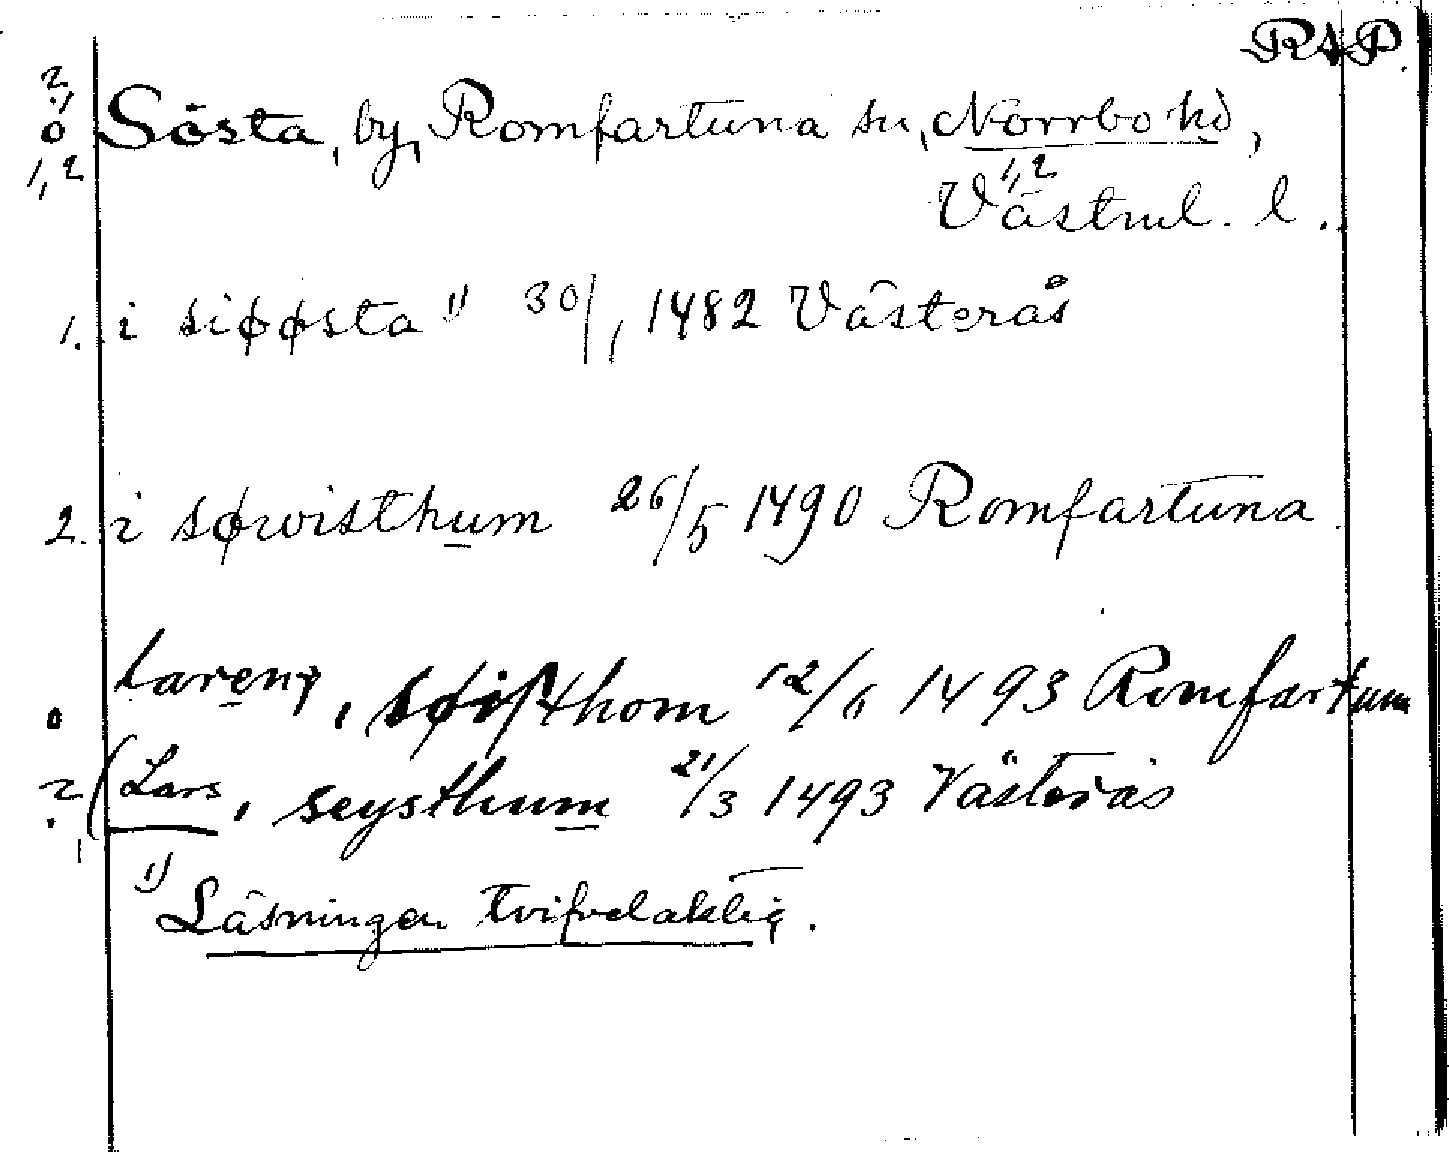 RAP.
Sösta, by, Romfartuna sn, Norrbo hd,
1,2
Västml. l.
1. i siøøsta 1) 30/1 1482 Västerås
2. i søwisthum 26/5 1490 Romfartuna
0 , søisthom 12/6 1493 Romfartuna
2 (Lars, seysthum 21/3 1493 Västerås
1) Läsningen tvifvelaktig.